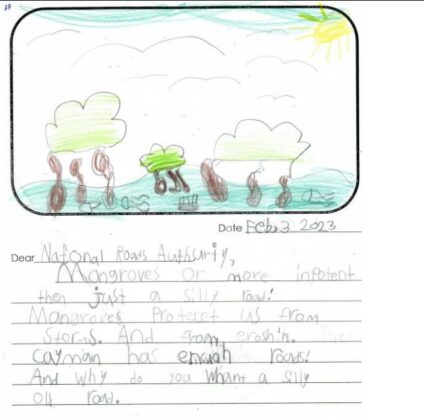 Date Feb 23 2023
Dear National Roads Authurity,
Mangroves or more inpotent
then just a silly road!
Mangroves Protecet us from
Storms. And from eroshin. The
cayman has enough roads!
And why do you whant a silly
oll road.